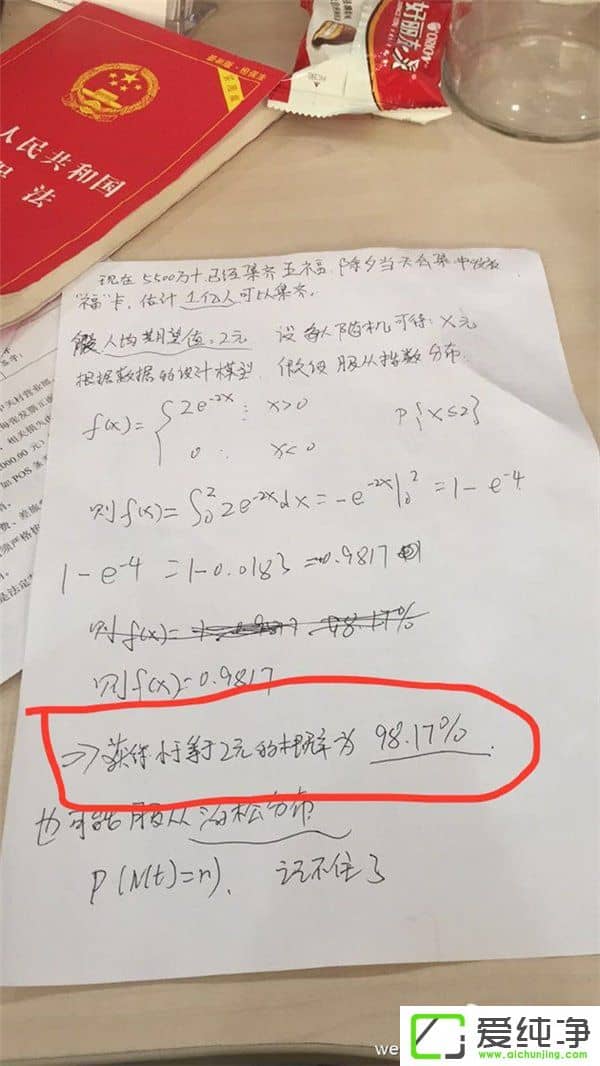 最新版·附配套
实用版
人民共和国
法
好丽友
ORION
现在5500万+已经集齐五福,除夕当天会集中发放
"福"卡,估计1亿人可以集齐。
假 人均期望值:2元 设每人随机可得:X元
根据数据的统计模型 假使服从指数分布
f(x)= 2e^-2x : x>0 P{x≤2}
0 : x<0
则f(x)=∫₀²2e^-2x dx=-e^-2x|₀²=1-e^-4
1-e^-4=1-0.0183=0.9817
则f(x)=
则f(x)=0.9817
=>获得小于等于2元的概率为 98.17%.
也可能服从泊松分布
P(N(t)=n), 记不住了
we
爱纯净
www.aichunjing.com